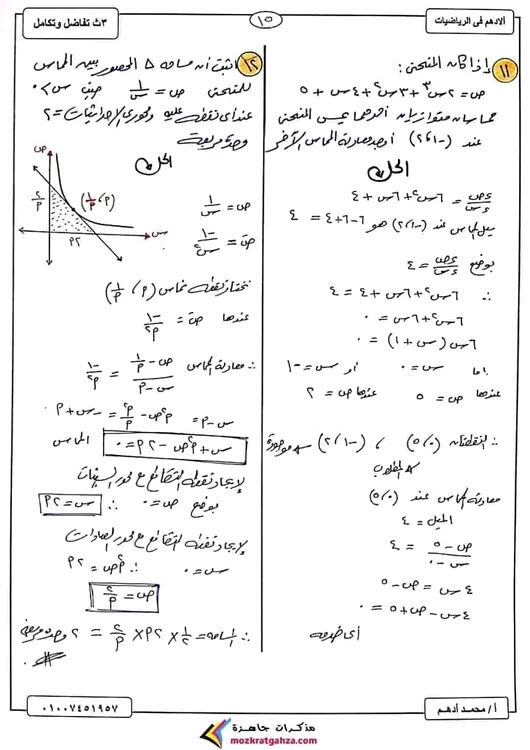 ألادهم فى الرياضيات
١٥
٣ث تفاضل وتكامل
١١ إذا كان المنحنى :
ص = ٢س٣ + ٣س٢ + ٤س + ٥
مماسان متوازيان أحدهما يمس المنحنى
عند (-١، ٢) أوجد معادلة المماس الآخر
الحل
ءص/ءس = ٦س٢ + ٦س + ٤
ميل المماس عند (-١، ٢) هو ٦-٦+٤ = ٤
بوضع ءص/ءس = ٤
∴ ٦س٢ + ٦س + ٤ = ٤
٦س٢ + ٦س = ٠
٦س (س + ١) = ٠
إما س = ٠ أو س = -١
عندها ص = ٥ عندها ص = ٢
∴ النقطتان (٠، ٥) ، (-١، ٢) موجودة
المطلوب
معادلة المماس عند (٠، ٥)
الميل = ٤
ص - ٥ / س - ٠ = ٤
٤س = ص - ٥
٤س - ص + ٥ = ٠
١٢ اثبت أن مساحة Δ المحصور بين المماس
للمنحنى ص = ١/س حيث س > ٠
عند أى نقطة عليه ومحورى الإحداثيات = ٢
وحدة مربعة
الحل
ص
٢/م
(م، ١/م)
٢م
س
ص = ١/س
صَ = -١/س٢
نختار نقطة تماس (م، ١/م)
عندها صَ = -١/م٢
∴ معادلة المماس ص - ١/م / س - م = -١/م٢
م٢ص - م٢/م = -س + م
س + م٢ص - ٢م = ٠ المماس
لإيجاد نقطة التقاطع مع محور السينات
بوضع ص = ٠ ∴ س = ٢م
لإيجاد نقطة التقاطع مع محور الصادات
س = ٠ ∴ م٢ص = ٢م
ص = ٢/م
∴ المساحة = ١/٢ × ٢م × ٢/م = ٢ وحدة مربعة
أ / محمد أدهم
٠١٠٠٧٤٥١٩٥٧
مذكرات جاهزة
mozkratgahza.com